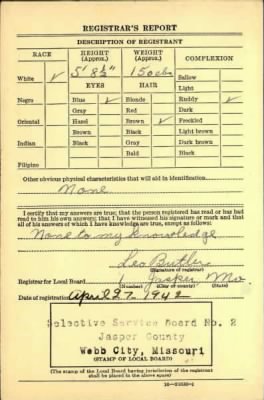 REGISTRAR'S REPORT
DESCRIPTION OF REGISTRANT
RACE HEIGHT (Approx.) WEIGHT (Approx.) COMPLEXION
White ✓ 5' 8½" 150 lbs Sallow
EYES HAIR Light
Negro Blue ✓ Blonde Ruddy ✓
Gray Red Dark
Oriental Hazel Brown ✓ Freckled
Brown Black Light brown
Indian Black Gray Dark brown
Bald Black
Filipino
Other obvious physical characteristics that will aid in identification
None
I certify that my answers are true; that the person registered has read or has had
read to him his own answers; that I have witnessed his signature or mark and that
all of his answers of which I have knowledge are true, except as follows:
None to my knowledge
Leo Butler
(Signature of registrar)
Registrar for Local Board Jasper Mo.
(City) (State)
Date of registration April 27 1942
Selective Service Board No. 2
Jasper County
Webb City, Missouri
(STAMP OF LOCAL BOARD)
(The stamp of the Local Board having jurisdiction of the registrant
shall be placed in the above space)